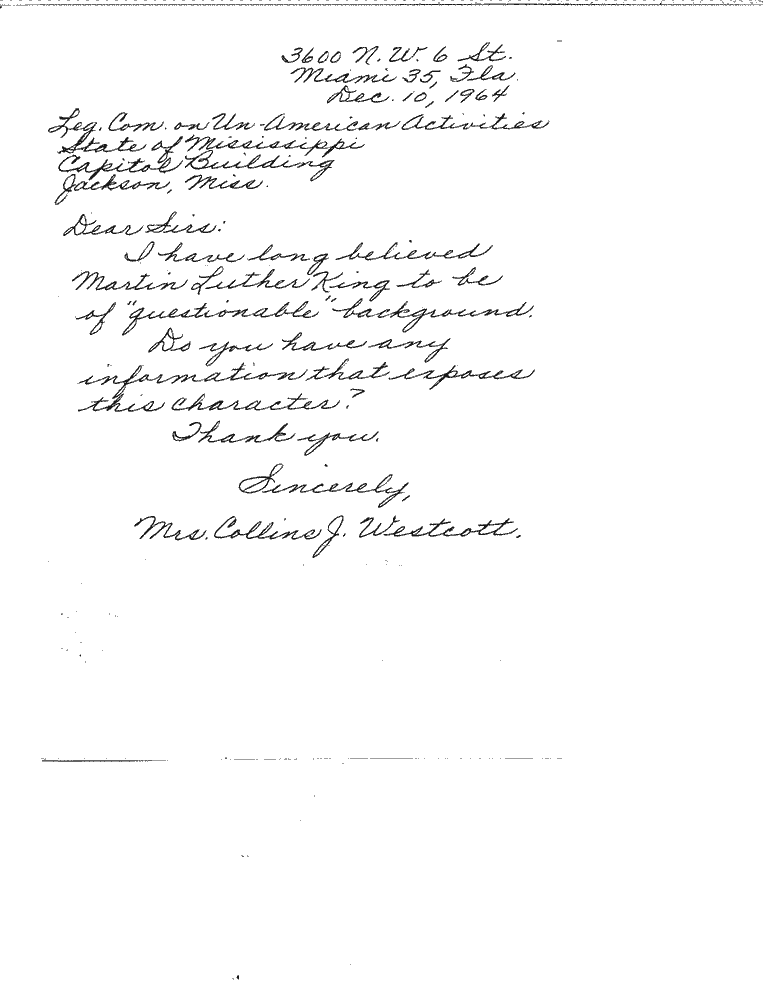 3600 N.W. 6 St.
Miami 35, Fla.
Dec. 10, 1964
Leg. Com. on Un-American Activities
State of Mississippi
Capitol Building
Jackson, Miss.
Dear Sirs:
I have long believed
Martin Luther King to be
of "questionable" background.
Do you have any
information that exposes
this character?
Thank you.
Sincerely,
Mrs. Collins J. Westcott.